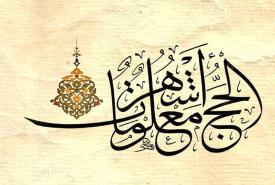 الحج أشهر معلومات